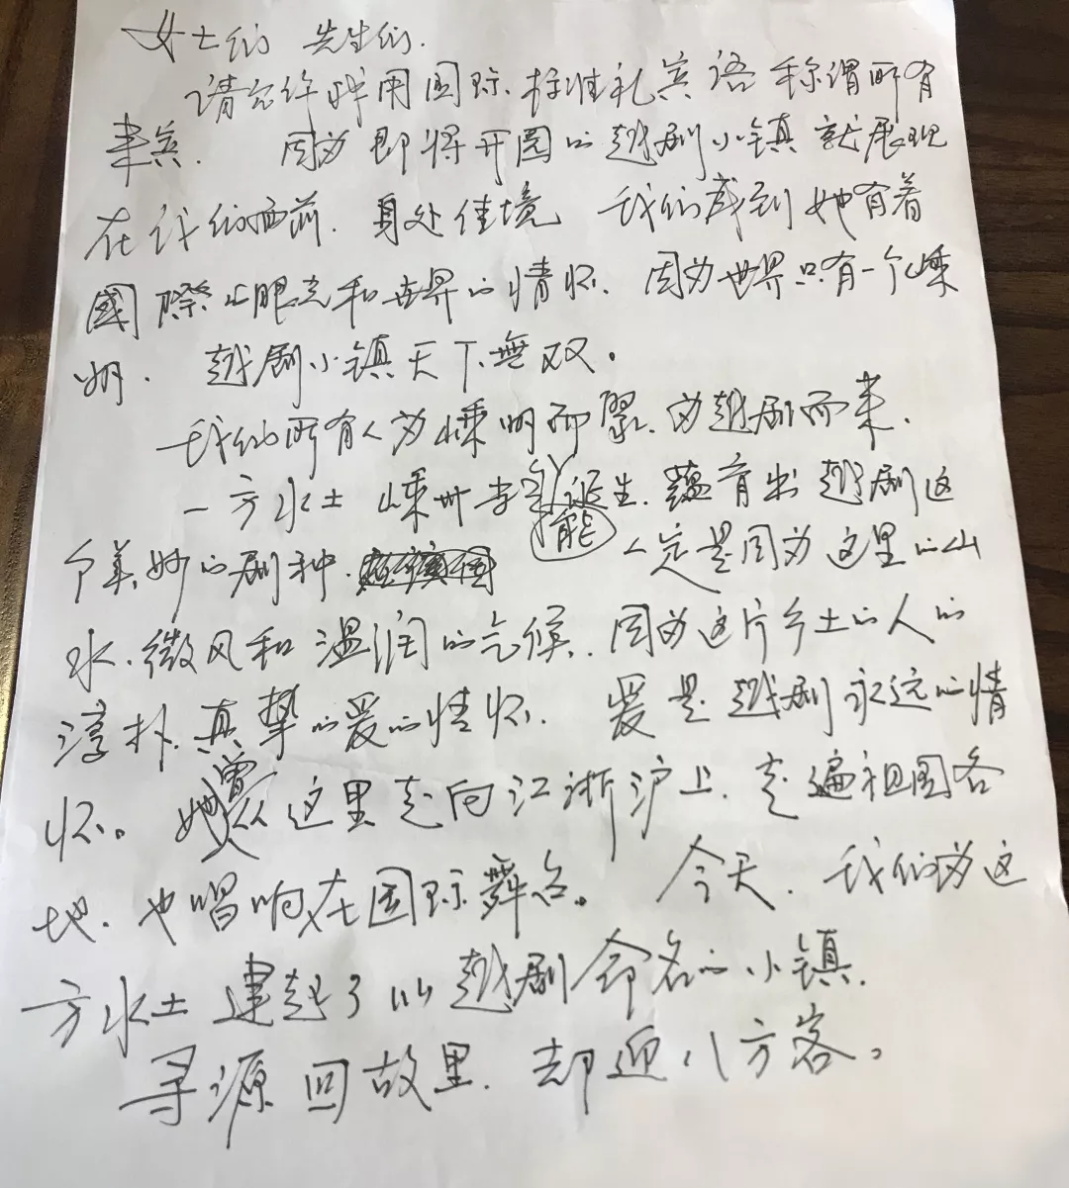 女士们 先生们.
请允许我用国际标准礼宾语称谓所有
来宾. 因为即将开园的越剧小镇就展现
在我们面前. 身处佳境 我们感到她有着
國際的眼光和世界的情怀. 因为世界只有一个嵊
州. 越剧小镇天下無双。
我们所有人为嵊州而聚. 为越剧而来.
一方水土 嵊州 能诞生. 蕴育出越剧这
个美妙的剧种. 一定是因为这里的山
水、微风和温润的气候. 因为这片乡土的人的
淳朴.真挚的爱的情怀. 爱是越剧永远的情
怀。 她曾从这里走向江浙沪上. 走遍祖国各
地. 也唱响在国际舞台。 今天. 我们为这
方水土 建起了以越剧命名的小镇.
寻源回故里. 却迎八方客。